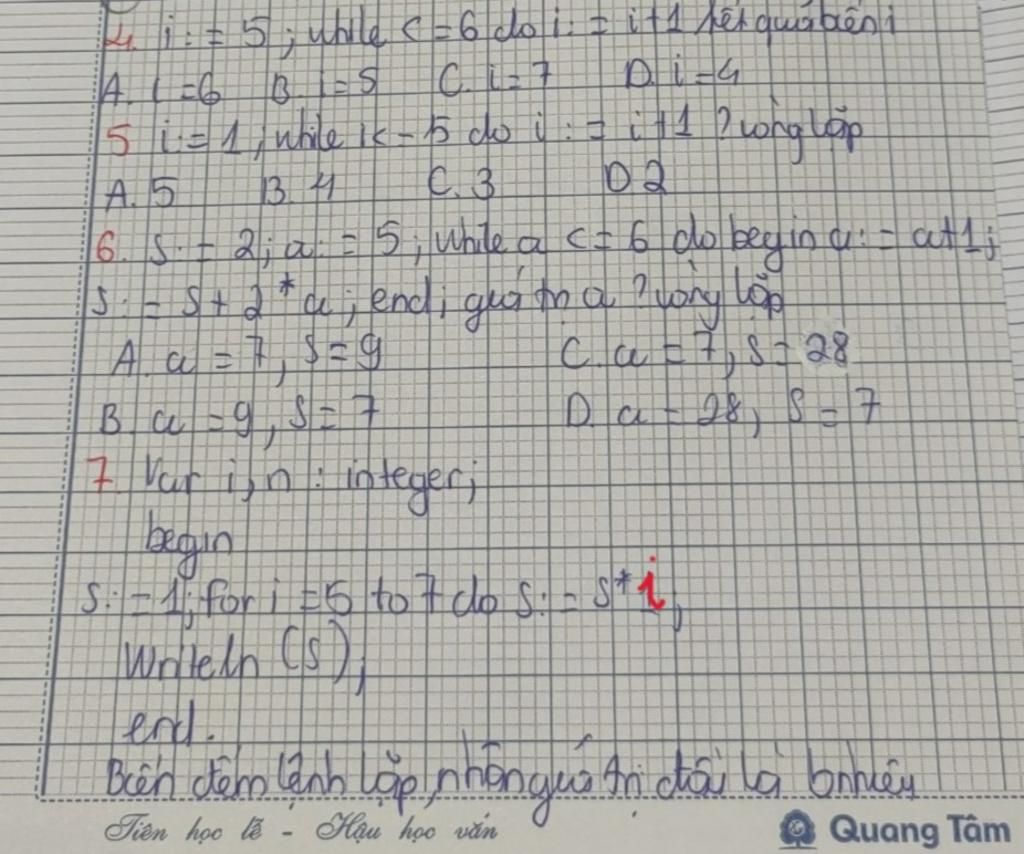 4. i := 5 ; while <=6 do i := i+1 kết quả biến i
A. i =6 B. i=5 C. i=7 D. i=4
5 i:=1, while i<=5 do i := i+1 ? vòng lặp
A. 5 B. 4 C. 3 D 2
6. S := 2; a := 5; while a <= 6 do begin a := a+1;
S := S + 2 * a; end; giá trị a ? vòng lặp
A. a = 7, S = 9 C. a = 7, S = 28
B. a = 9, S = 7 D. a = 28, S = 7
7. Var i, n : integer;
begin
S := 1; for i =5 to 7 do S := S* i;
Writeln (S);
end.
Biến đếm lệnh lặp, nhận giá trị đầu là bnhiêu
Tiên học lễ - Hậu học văn
Quang Tâm